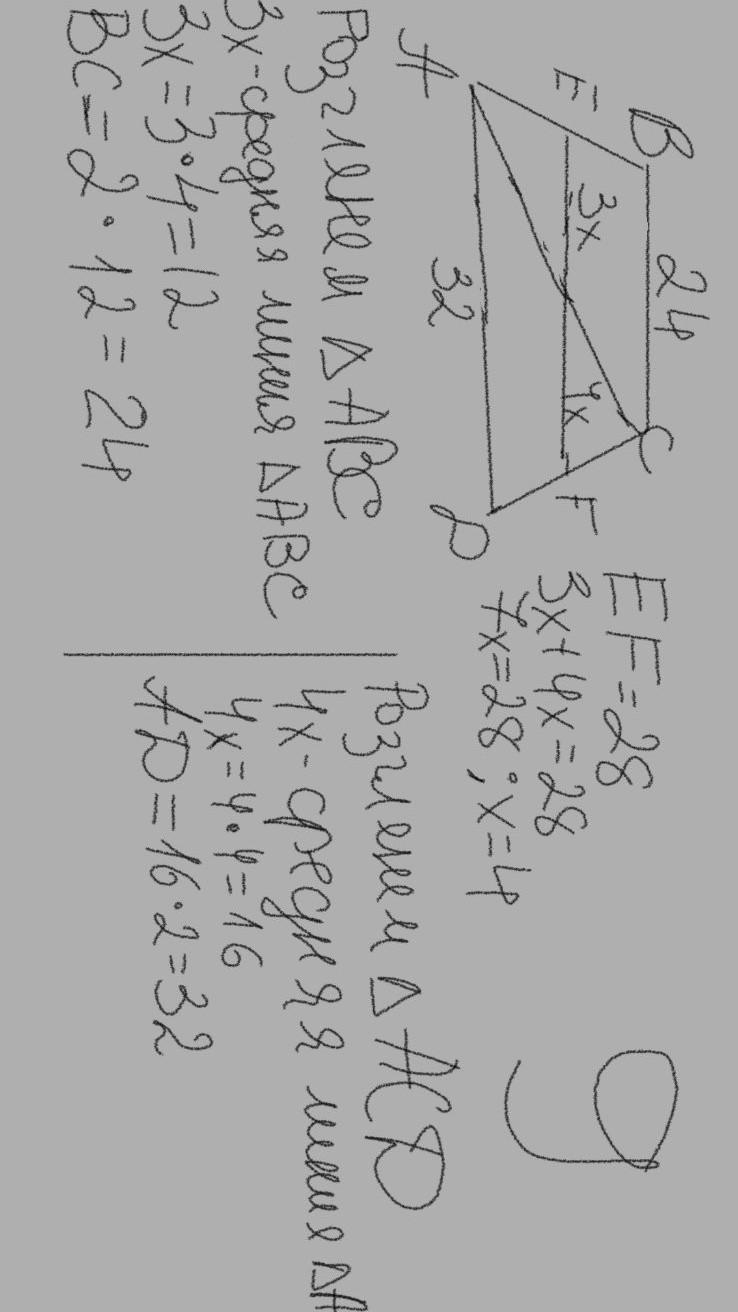 B 24 C
E 3x 4x F
A 32 D
EF=28
3x+4x=28
7x=28; x=4
9
Розглянем △ABC
3x-средняя линия △ABC
3x=3·4=12
BC=2·12=24
Розглянем △ACD
4x-средняя линия △A
4x=4·4=16
AD=16·2=32